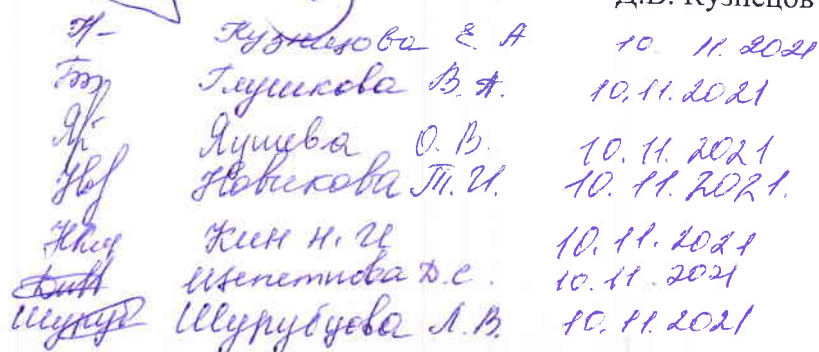 Д.В. Кузнецов
Кузнецова Е. А 10. 11. 2021
Глушкова В. А. 10.11.2021
Яушева О. В. 10. 11. 2021
Новикова Т. И. 10. 11. 2021.
Ким Н. И 10. 11. 2021
Щепетнова Д.С. 10.11.2021
Шурубцова Л. В. 10. 11. 2021